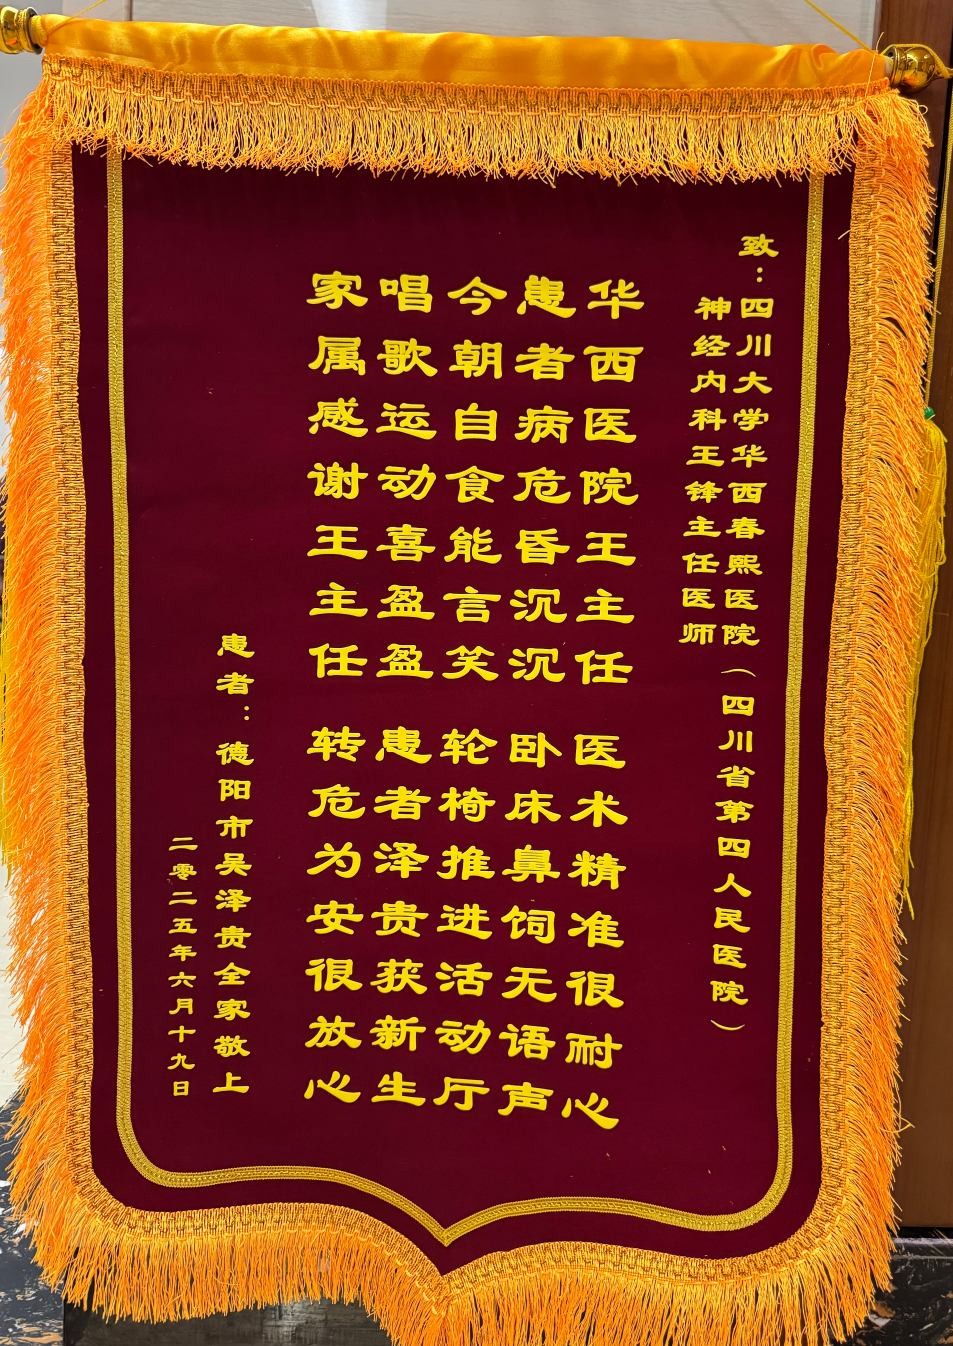 致：四川大学华西春熙医院（四川省第四人民医院）
神经内科王锋主任医师
华西医院王主任 医术精准很耐心
患者病危昏沉沉 卧床鼻饲无语声
今朝自食能言笑 轮椅推进活动厅
唱歌运动喜盈盈 患者泽贵获新生
家属感谢王主任 转危为安很放心
患者：德阳市吴泽贵全家敬上
二零二五年六月十九日